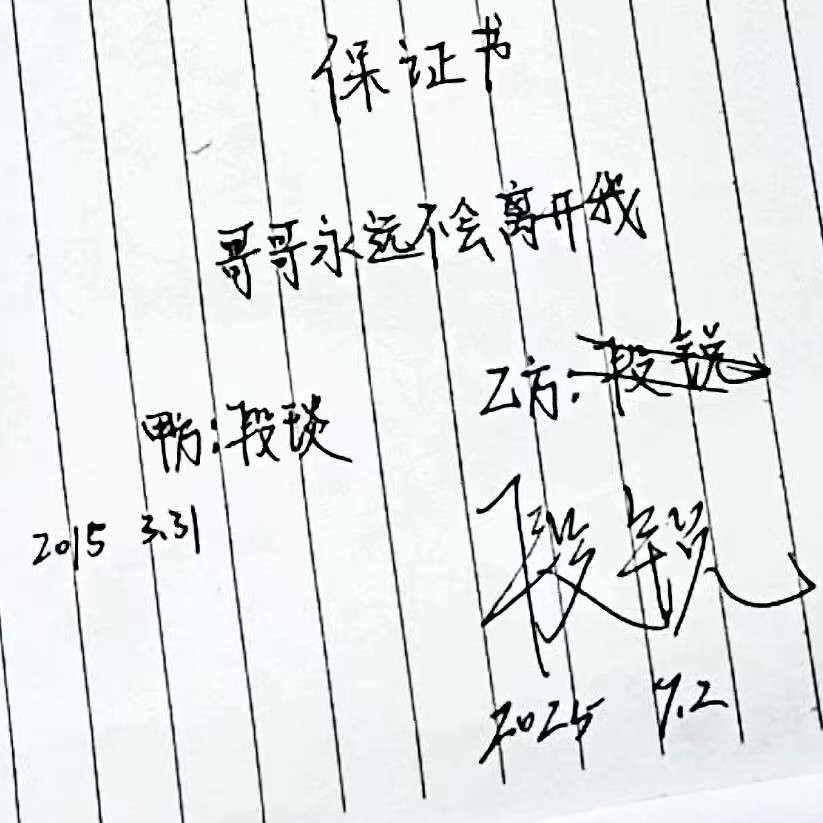 保证书
哥哥永远不会离开我
乙方：段锐
甲方：段琰
2015 3.31
段锐
2025 7.2